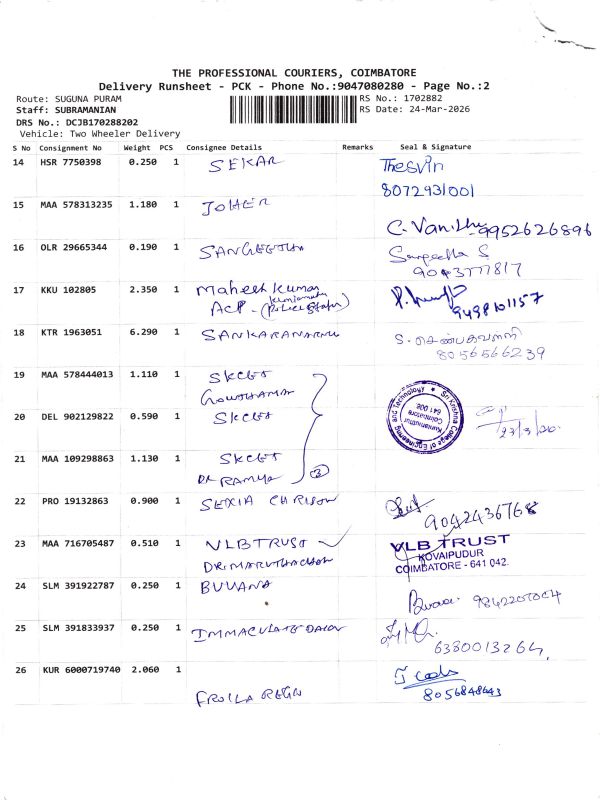 THE PROFESSIONAL COURIERS, COIMBATORE
Delivery Runsheet - PCK - Phone No.:9047080280 - Page No.:2
Route: SUGUNA PURAM
Staff: SUBRAMANIAN
DRS No.: DCJB170288202
Vehicle: Two Wheeler Delivery
RS No.: 1702882
RS Date: 24-Mar-2026
S No Consignment No Weight PCS Consignee Details Remarks Seal & Signature
14 HSR 7750398 0.250 1 SEKAR Thesvin
8072931001
15 MAA 578313235 1.180 1 JOHER
C. Vanitha 9952626896
16 OLR 29665344 0.190 1 SANGEETHA Sangeetha S
9043777817
17 KKU 102805 2.350 1 Mahesh Kumar
ACP - (Police Station)
9498101157
18 KTR 1963051 6.290 1 SANKARANARAU S. செண்பகவள்ளி
8056566239
19 MAA 578444013 1.110 1 SKCET
GOWTHAMAN
20 DEL 902129822 0.590 1 SKCET
Sri Krishna College of Engineering and Technology
Kuniamuthur
Coimbatore
641 008
23/3/26
21 MAA 109298863 1.130 1 SKCET
DR RAMYA 3
22 PRO 19132863 0.900 1 CHRISON
9042436768
23 MAA 716705487 0.510 1 VLB TRUST
DR. MARUTHACHALAM
VLB TRUST
KOVAIPUDUR
COIMBATORE - 641 042.
24 SLM 391922787 0.250 1 BUVANA
Buvana. 9842207004
25 SLM 391833937 0.250 1 IMMACULATE
6380013264
26 KUR 6000719740 2.060 1
8056848643
FROILA REGN